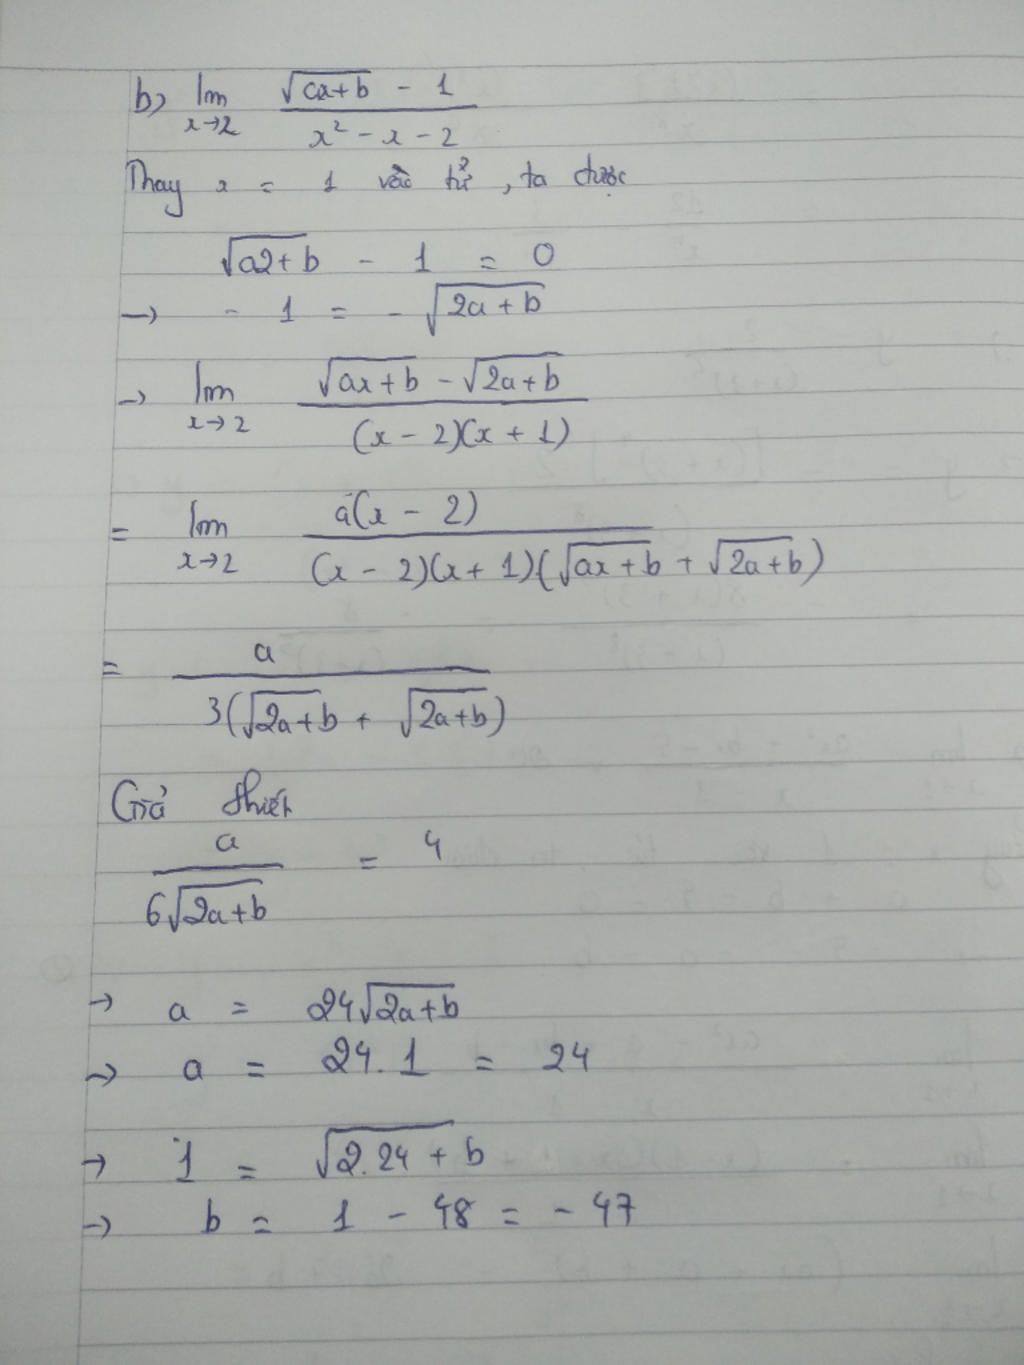 b) lim √(ax+b) - 1 / x² - x - 2
x→2
Thay x = 1 vào tử, ta được
√(a2+b) - 1 = 0
→ - 1 = - √(2a+b)
→ lim √(ax+b) - √(2a+b) / (x - 2)(x + 1)
x→2
= lim a(x - 2) / (x - 2)(x + 1)(√(ax+b) + √(2a+b))
x→2
= a / 3(√(2a+b) + √(2a+b))
Giả thiết
a / 6√(2a+b) = 4
→ a = 24√(2a+b)
→ a = 24.1 = 24
→ 1 = √(2.24 + b)
→ b = 1 - 48 = - 47